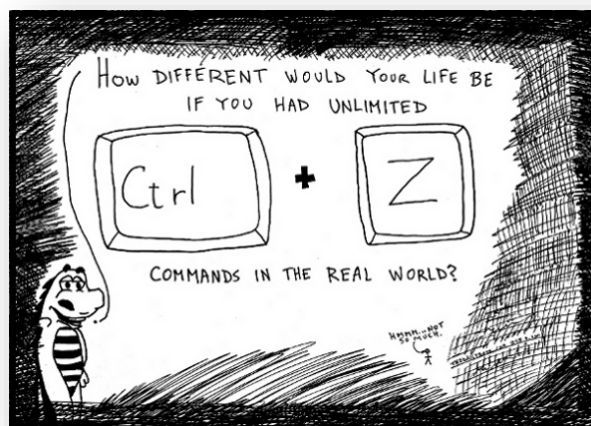 HOW DIFFERENT WOULD YOUR LIFE BE
IF YOU HAD UNLIMITED
Ctrl + Z
COMMANDS IN THE REAL WORLD?
HMMM...NOT
SO MUCH.